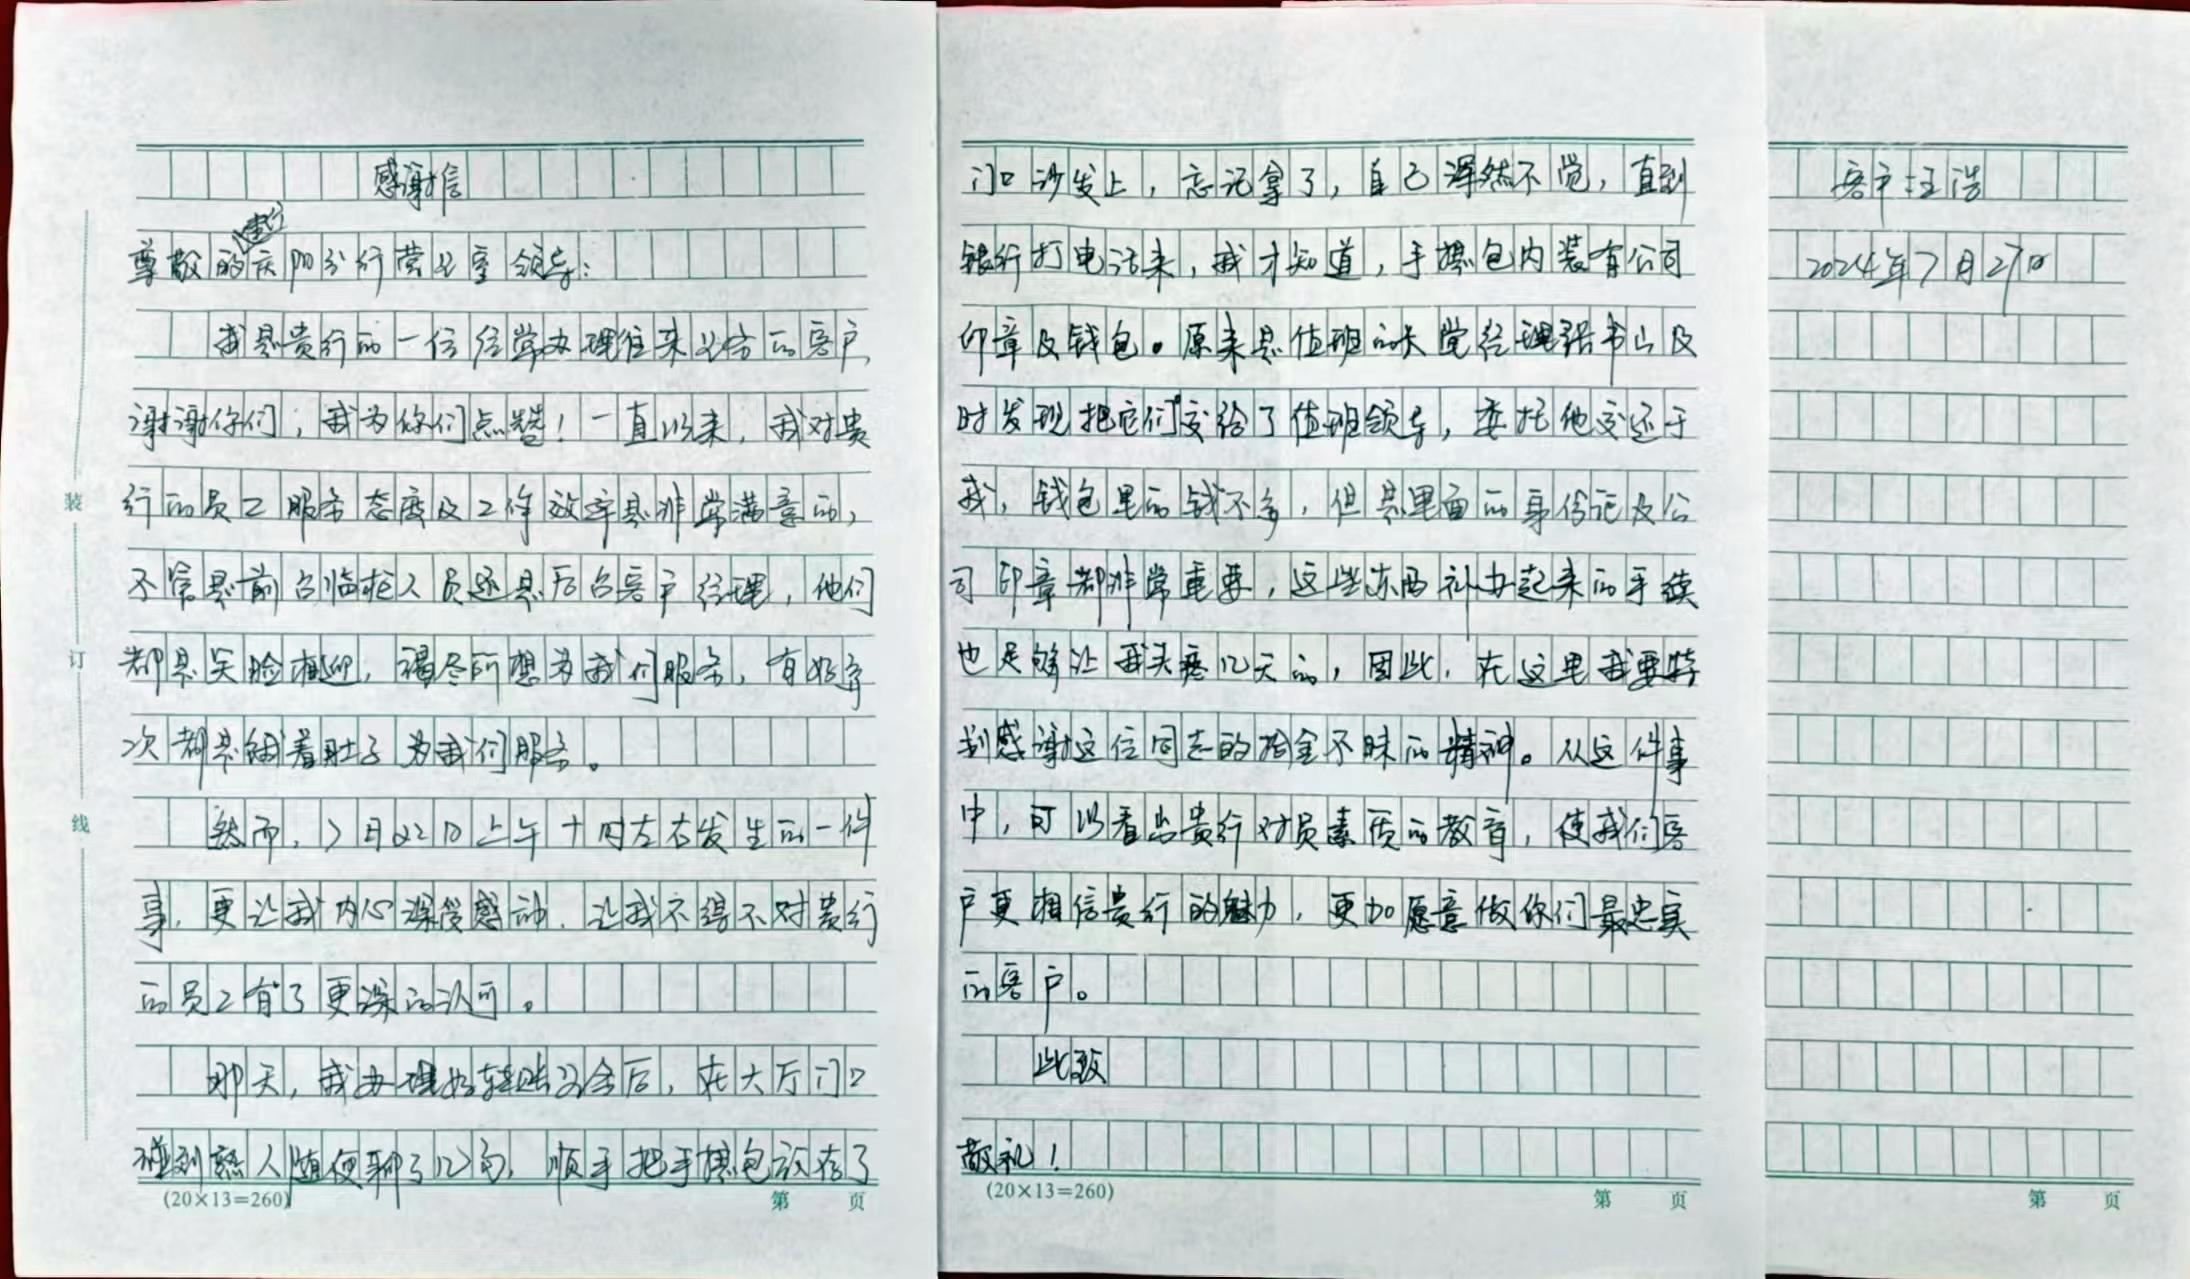 感谢信
建行
尊敬的庆阳分行营业室领导：
我是贵行的一位经常办理往来业务的客户，
谢谢你们，我为你们点赞！一直以来，我对贵
行的员工服务态度及工作效率是非常满意的，
不管是前台临柜人员还是后台客户经理，他们
都是笑脸相迎，竭尽所想为我们服务，有好几
次都是饿着肚子为我们服务。
然而，7月22日上午十时左右发生的一件
事，更让我内心深受感动，让我不得不对贵行
的员工有了更深的认可。
那天，我办理好转账业务后，在大厅门口
碰到熟人随便聊了几句，顺手把手摞包放在了
装
订
线
(20×13=260)
第 页
门口沙发上，忘记拿了，自己浑然不觉，直到
银行打电话来，我才知道，手摞包内装有公司
印章及钱包。原来是值班的大堂经理张书山及
时发现把它们交给了值班领导，委托他交还于
我，钱包里的钱不多，但是里面的身份证及公
司印章都非常重要，这些东西补办起来的手续
也足够让我头疼几天的，因此，在这里我要特
别感谢这位同志的拾金不昧的精神。从这件事
中，可以看出贵行对员素质的教育，使我们客
户更相信贵行的魅力，更加愿意做你们最忠实
的客户。
此致
敬礼！
(20×13=260)
第 页
客户：汪浩
2024年7月27日
第 页